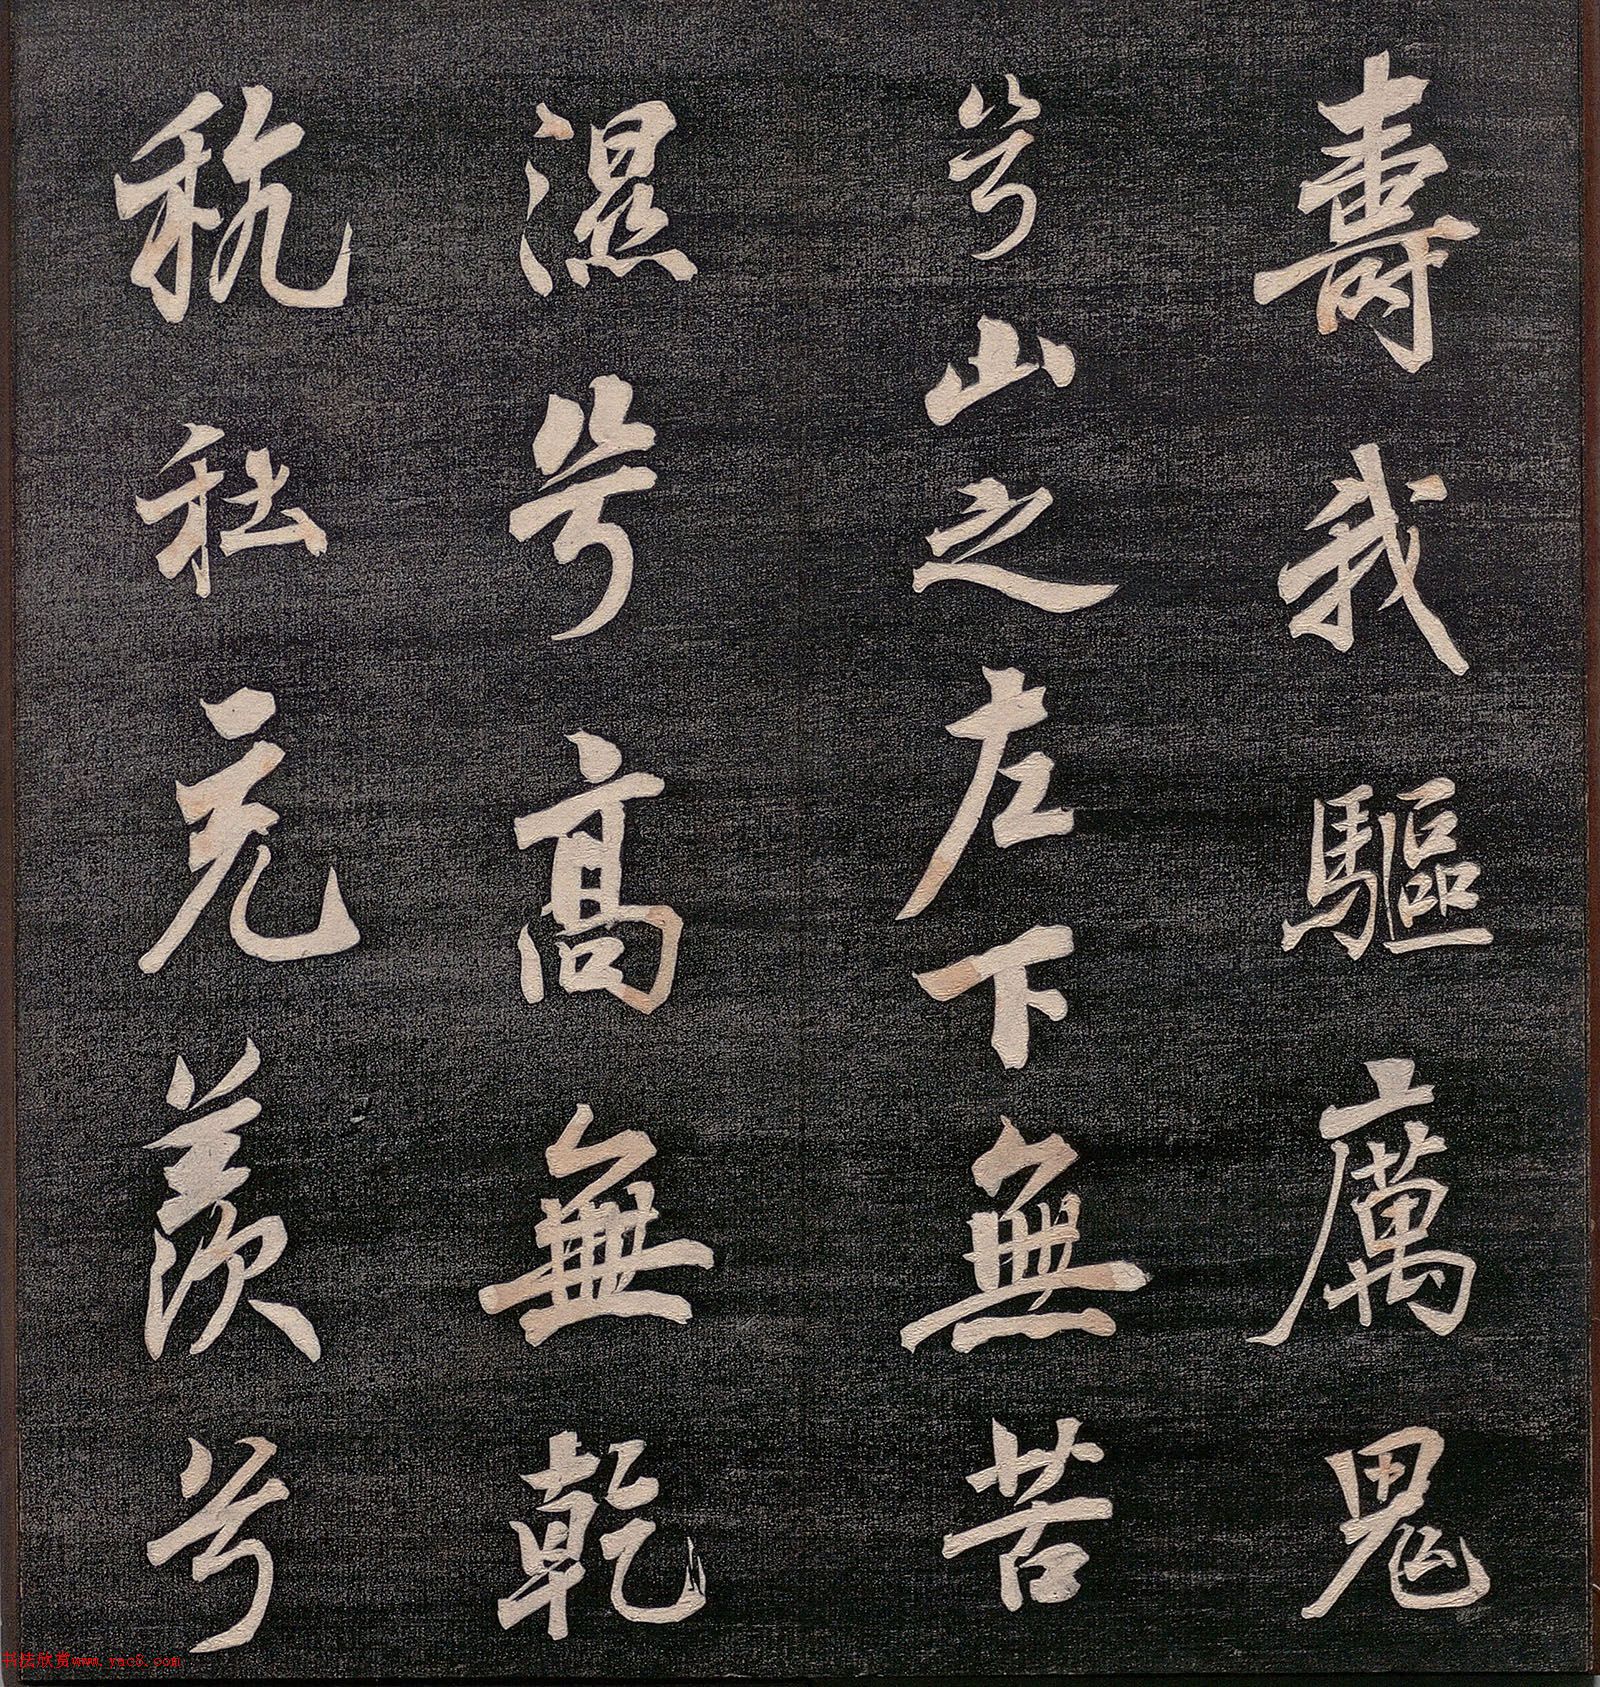 壽我驅厲鬼
兮山之左下無苦
濕兮高無乾
秔秥充羨兮
书法欣赏www.yac8.com